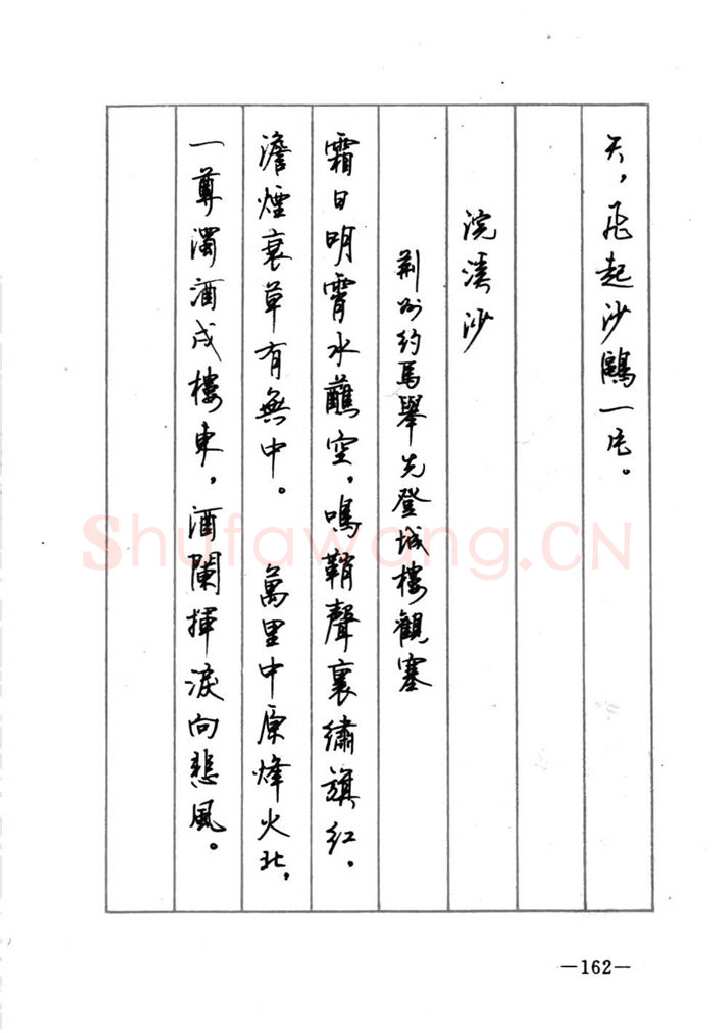 天，飛起沙鷗一片。
浣溪沙
荆州約馬舉先登城樓觀塞
霜日明霄水蘸空，鳴鞘聲裏繡旗紅。
澹煙衰草有無中。　萬里中原烽火北，
一尊濁酒戍樓東，酒闌揮淚向悲風。
Shufawang.CN
—162—